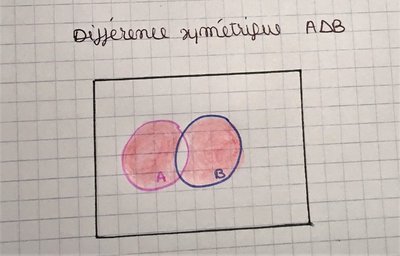 Différence symétrique AΔB
A B